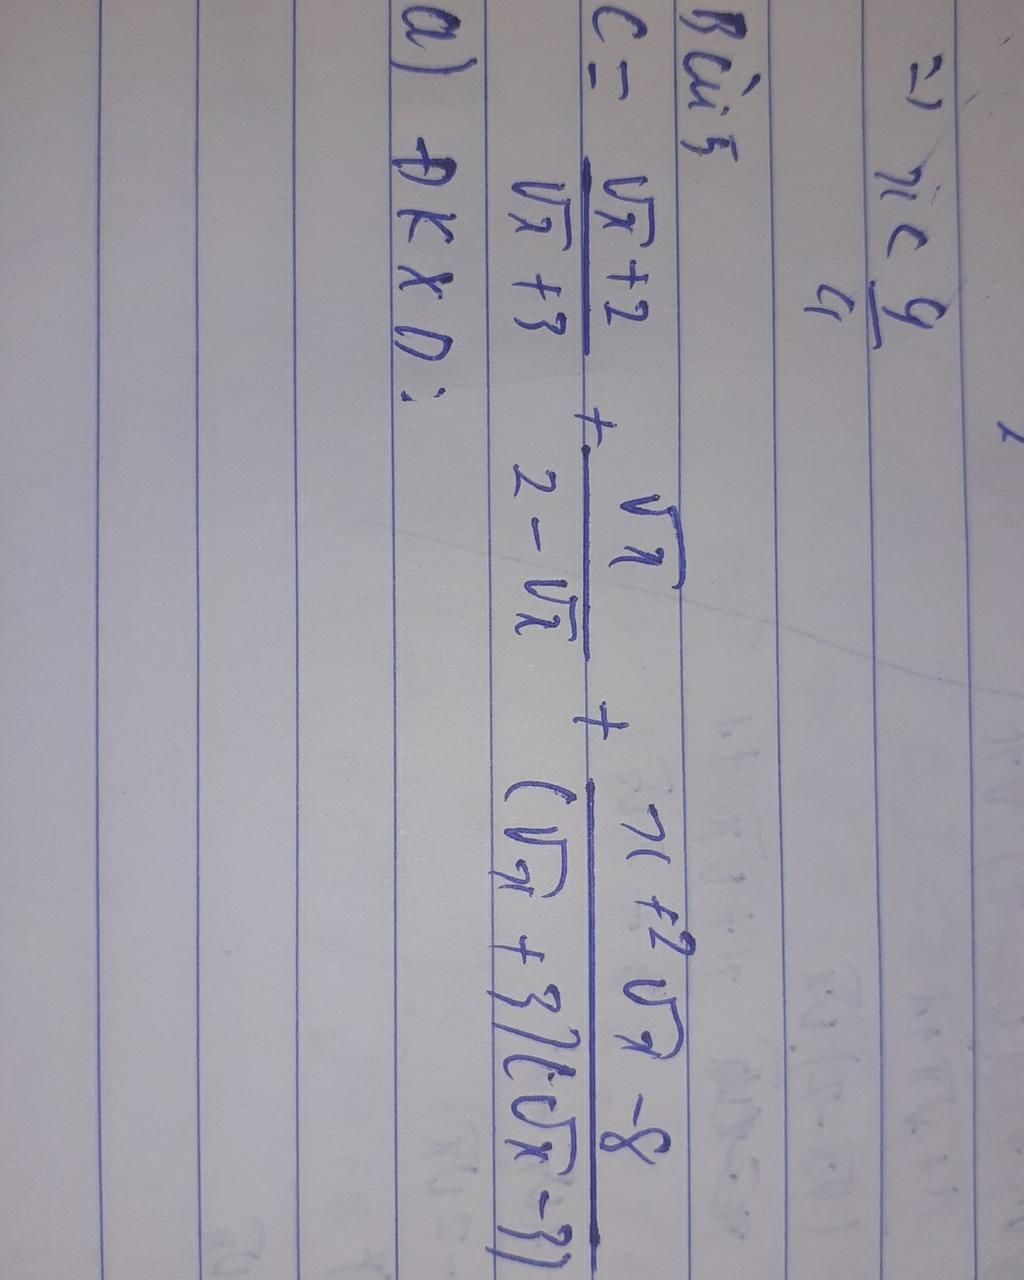 =) x < 9/4
Bài 5
C = (√x+2)/(√x+3) + √x/(2-√x) + (x+2√x-8)/((√x+3)(√x-3))
a) ĐKXĐ: